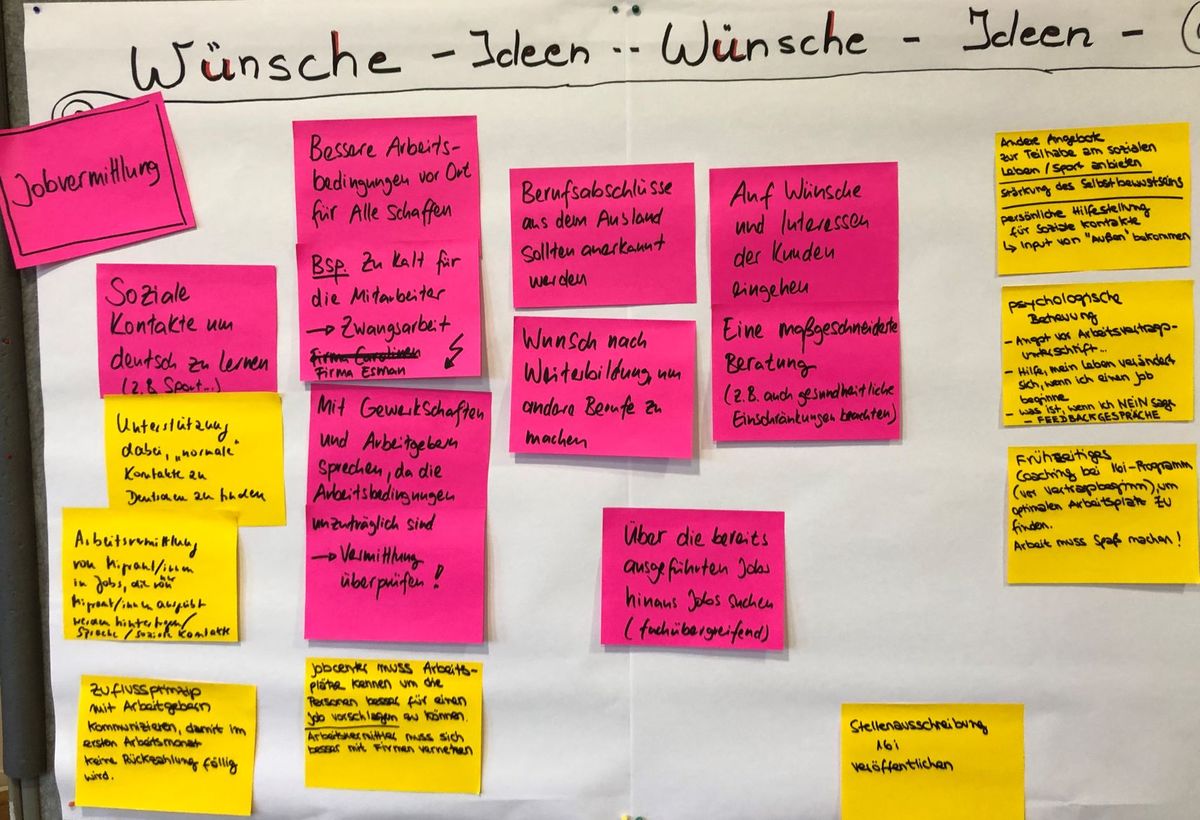 Wünsche - Ideen -- Wünsche - Ideen -
Jobvermittlung
Soziale
Kontakte um
deutsch zu lernen
(z.B. Sport...)
Unterstützung
dabei, „normale"
Kontakte zu
Deutschen zu finden
Arbeitsvermittlung
von Migrant/innen
in Jobs, die nur
Migrant/innen ausgeübt
werden hinterfragen/
Sprache/soziale Kontakte
Zuflussprinzip
mit Arbeitgebern
kommunizieren, damit im
ersten Arbeitsmonat
keine Rückzahlung fällig
wird.
Bessere Arbeits-
bedingungen vor Ort
für Alle Schaffen
Bsp. Zu Kalt für
die Mitarbeiter
→ Zwangsarbeit
Firma
Firma Esman
Mit Gewerkschaften
und Arbeitgebern
sprechen, da die
Arbeitsbedingungen
unzuträglich sind
→ Vermittlung
überprüfen!
Jobcenter muss Arbeits-
plätze kennen um die
Personen besser für einen
Job vorschlagen zu können.
Arbeitsvermittler muss sich
besser mit Firmen vernetzen
Berufsabschlüsse
aus dem Ausland
sollten anerkannt
werden
Wunsch nach
Weiterbildung, um
andere Berufe zu
machen
Auf Wünsche
und Interessen
der Kunden
eingehen
Eine maßgeschneiderte
Beratung
(z.B. auch gesundheitliche
Einschränkungen beachten)
Über die bereits
ausgeführten Jobs
hinaus Jobs suchen
(fachübergreifend)
Stellenausschreibung
16i
veröffentlichen
Andere Angebote
zur Teilhabe am sozialen
Leben/Sport anbieten
Stärkung des Selbstbewusstseins
persönliche Hilfestellung
für soziale Kontakte
↳ Input von "Außen" bekommen
psychologische
Betreuung
- Angst vor Arbeitsvertrags-
unterschrift...
- Hilfe, mein Leben verändert
sich, wenn ich einen Job
beginne
- was ist, wenn ich NEIN sage
- FEEDBACKGESPRÄCHE
Frühzeitiges
Coaching bei 16i-Programm
(vor Vertragsbeginn), um
optimalen Arbeitsplatz zu
finden.
Arbeit muss Spaß machen!